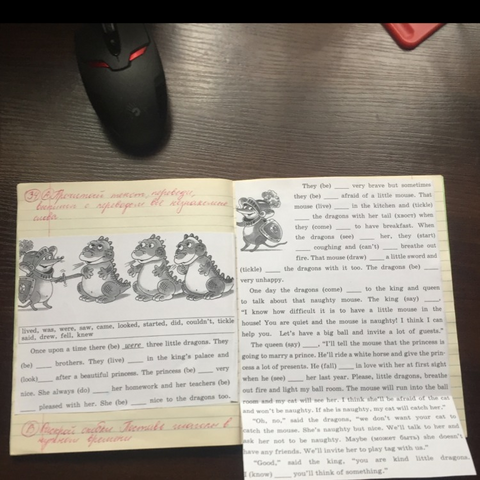 3) а) Прочитай текст, переведи,
слова
lived, was, were, saw, came, looked, started, did, couldn't, tickle
said, drew, fell, knew
Once upon a time there (be) were three little dragons. They
(be) ____ brothers. They (live) ____ in the king's palace and
(look) ____ after a beautiful princess. The princess (be) ____ very
nice. She always (do) ____ her homework and her teachers (be)
____ pleased with her. She (be) ____ nice to the dragons too.
скобки. Поставь глаголы в
времени
They (be) ____ very brave but sometimes
they (be) ____ afraid of a little mouse. That
mouse (live) ____ in the kitchen and (tickle)
____ the dragons with her tail (хвост) when
they (come) ____ to have breakfast. When
the dragons (see) ____ her, they (start)
____ coughing and (can't) ____ breathe out
fire. That mouse (draw) ____ a little sword and
(tickle) ____ the dragons with it too. The dragons (be) ____
very unhappy.
One day the dragons (come) ____ to the king and queen
to talk about that naughty mouse. The king (say) ____,
"I know how difficult it is to have a little mouse in the
house! You are quiet and the mouse is naughty! I think I can
help you. Let's have a big ball and invite a lot of guests."
The queen (say) ____, "I'll tell the mouse that the princess is
going to marry a prince. He'll ride a white horse and give the prin-
cess a lot of presents. He (fall) ____ in love with her at first sight
when he (see) ____ her last year. Please, little dragons, breathe
out fire and light my ball room. The mouse will run into the ball
room and my cat will see her. I think she'll be afraid of the cat
and won't be naughty. If she is naughty, my cat will catch her."
"Oh, no," said the dragons, "we don't want your cat to
catch the mouse. She's naughty but nice. We'll talk to her and
ask her not to be naughty. Maybe (может быть) she doesn't
have any friends. We'll invite her to play tag with us."
"Good," said the king, "you are kind little dragons.
I (know) ____ you'll think of something."